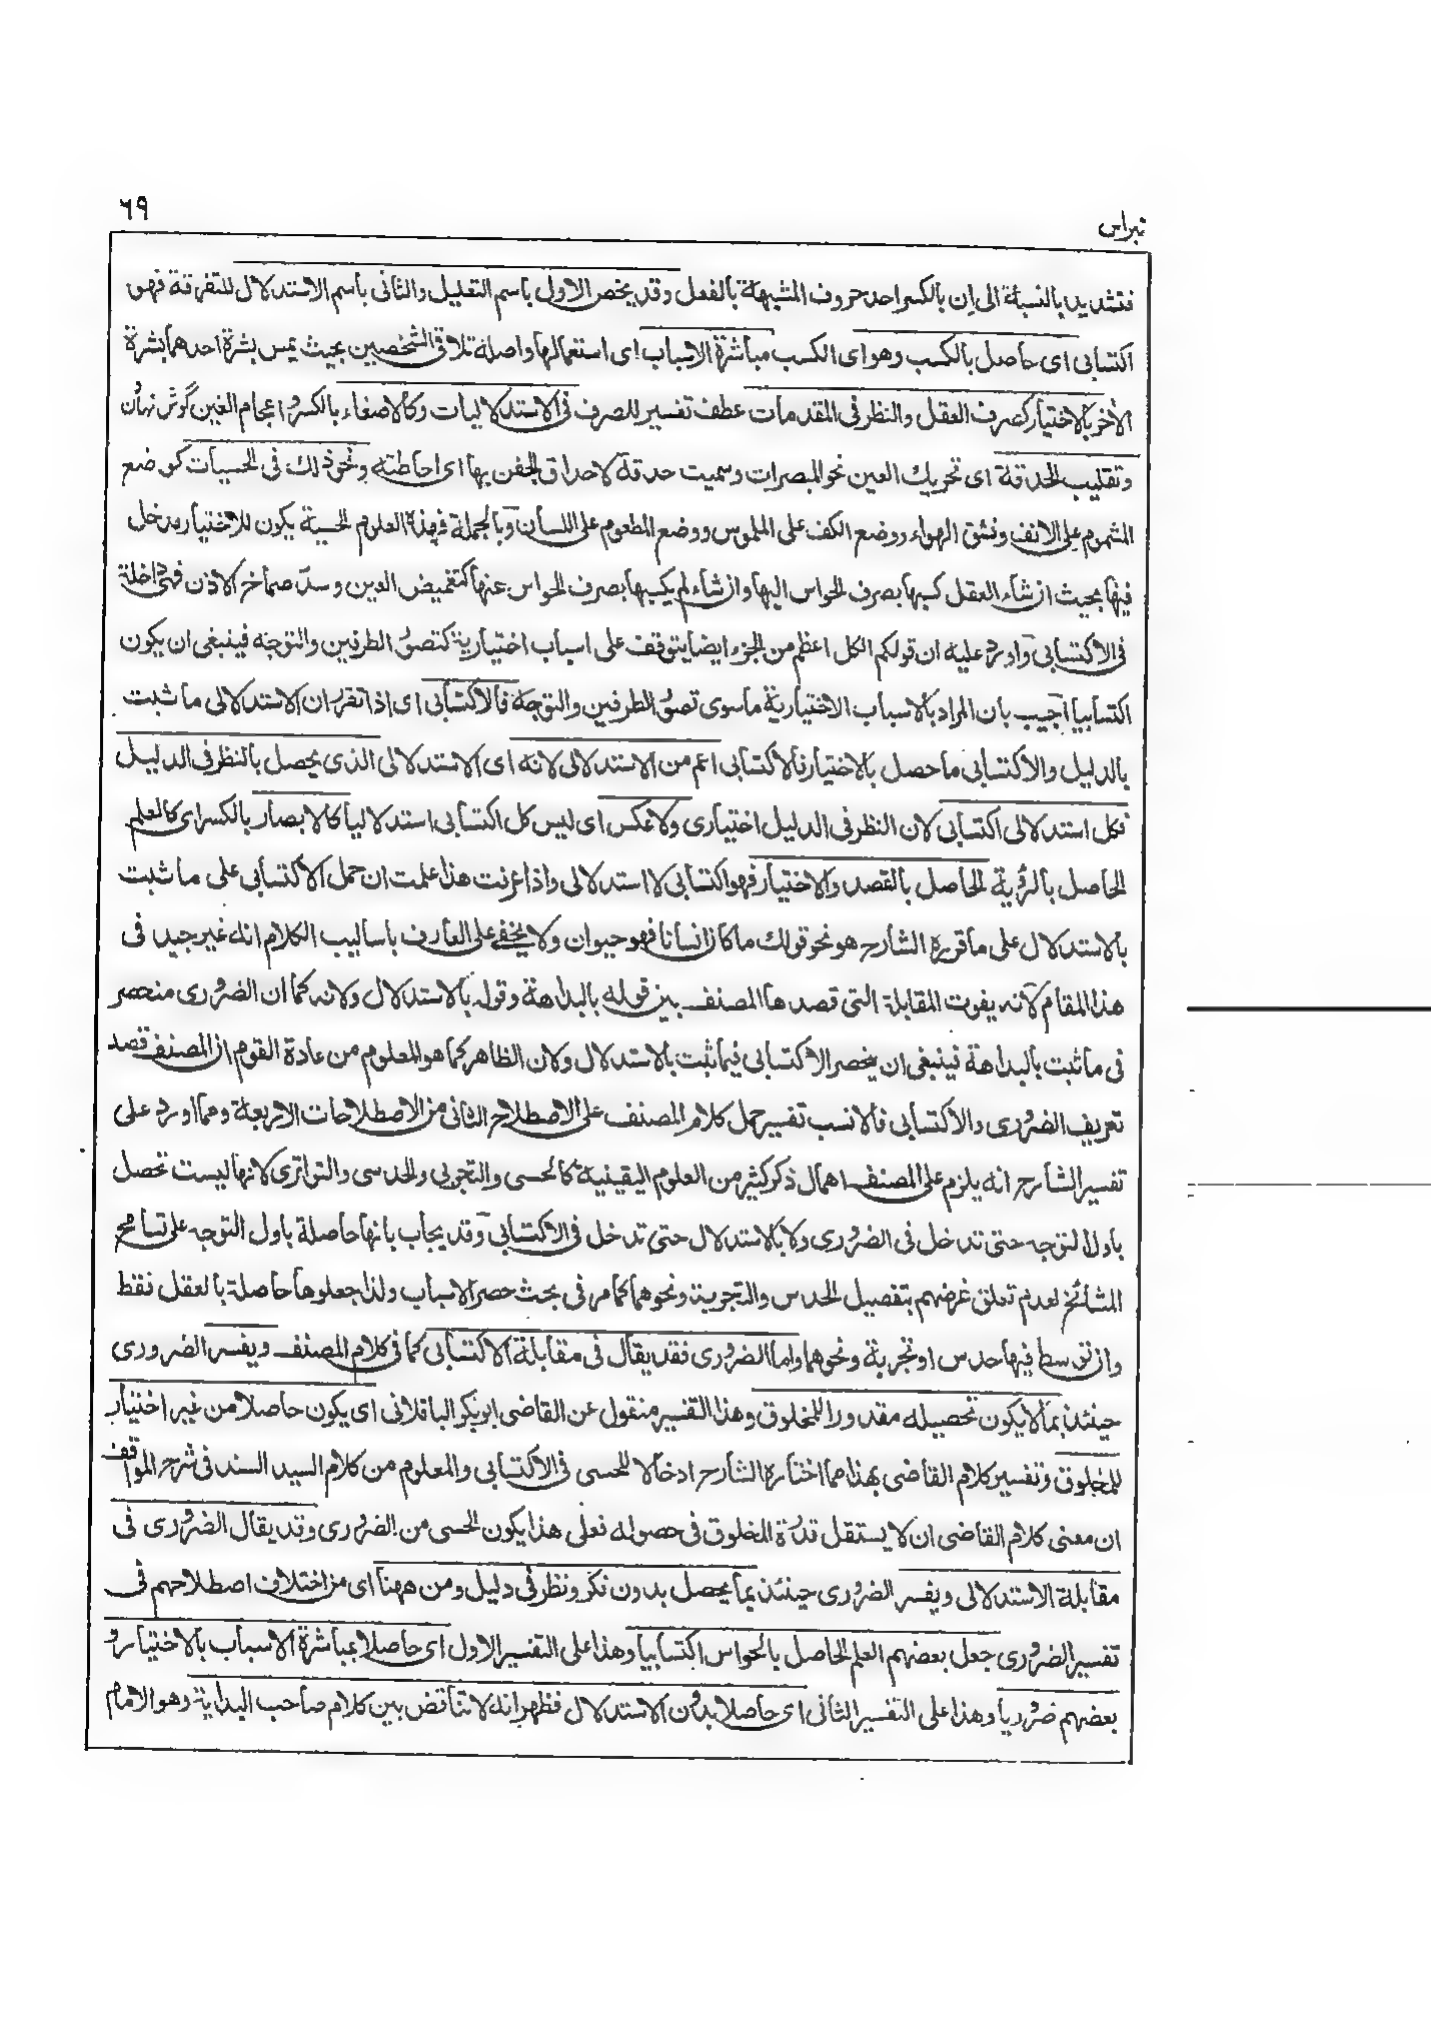 ٦٩
نبراس
فتشديد بالنسبة الى اِن بالكسر احد حروف المشبهة بالفعل وقد يخص الاول باسم التعليل والثانى باسم الاستدلال للتفرقة فهو
اكتسابى اى حاصل بالكسب وهو اى الكسب مباشرة الاسباب اى استعمالها واصله تلاقى الشخصين بحيث يمس بشرة احدهما بشرة
الآخر بالاختيار كصرف العقل والنظر فى المقدمات عطف تفسير للصرف فى الاستدلاليات وكالاصغاء بالكسر واعجام الغين گوش نهادن
وتقليب الحدقة اى تحريك العين نحو المبصرات وسميت حدقة لاحداق الجفن بها اى احاطته ونحو ذلك فى الحسيات كوضع
المشموم على الانف ونشق الهواء ووضع الكف على الملموس ووضع المطعوم على اللسان وبالجملة فهذه العلوم الحسية يكون للاختيار مدخل
فيها بحيث ان شاء العقل كسبها بصرف الحواس اليها وان شاء لم يكسبها بصرف الحواس عنها كتغميض العين وسدّ صماخ الاذن فهى داخلة
فى الاكتسابى واورد عليه ان قولكم الكل اعظم من الجزء ايضا يتوقف على اسباب اختيارية كتصور الطرفين والتوجه فينبغى ان يكون
اكتسابيا اجيب بان المراد بالاسباب الاختيارية ما سوى تصور الطرفين والتوجه فالاكتسابى اى اذا تقرر ان الاستدلالى ما ثبت
بالدليل والاكتسابى ما حصل بالاختيار فالاكتسابى اعم من الاستدلالى لانه اى الاستدلالى الذى يحصل بالنظر فى الدليل
فكل استدلالى اكتسابى لان النظر فى الدليل اختيارى ولا عكس اى ليس كل اكتسابى استدلاليا كالابصار بالكسر اى كالعلم
الحاصل بالرؤية الحاصل بالقصد والاختيار فهو اكتسابى لا استدلالى واذا عرفت هذا علمت ان حمل الاكتسابى على ما ثبت
بالاستدلال على ما قرره الشارح هو نحو قولك ما كان انسانا فهو حيوان ولا يخفى على العارف باساليب الكلام انه غير جيد فى
هذا المقام لانه يفوت المقابلة التى قصدها المصنف بين قوله بالبداهة وقوله بالاستدلال ولانه كما ان الضرورى منحصر
فى ما ثبت بالبداهة فينبغى ان يخصر الاكتسابى فيما ثبت بالاستدلال ولان الظاهر كما هو المعلوم من عادة القوم ان المصنف قصد
تعريف الضرورى والاكتسابى فالانسب تفسير حمل كلام المصنف على الاصطلاح الثانى من الاصطلاحات الاربعة ومما اورد على
تفسير الشارح انه يلزم على المصنف اهمال ذكر كثير من العلوم اليقينية كالحسى والتجربى والحدسى والتواترى لانها ليست تحصل
باول التوجه حتى تدخل فى الضرورى ولا بالاستدلال حتى تدخل فى الاكتسابى وقد يجاب بانها حاصلة باول التوجه على تسامح
المشائخ لعدم تعلق غرضهم بتفصيل الحدس والتجربة ونحوهما كما مر فى بحث حصر الاسباب ولذا جعلوها حاصلة بالعقل فقط
وان توسط فيها حدس او تجربة ونحوهما واما الضرورى فقد يقال فى مقابلة الاكتسابى كما فى كلام المصنف ويفسر الضرورى
حينئذ بما لا يكون تحصيله مقدورا للمخلوق وهذا التفسير منقول عن القاضى ابو بكر الباقلانى اى يكون حاصلا من غير اختيار
للمخلوق وتفسير كلام القاضى بهذا مما اختاره الشارح ادخالا للحسى فى الاكتسابى والمعلوم من كلام السيد السند فى شرح المواقف
ان معنى كلام القاضى ان لا يستقل قدرة المخلوق فى حصوله فعلى هذا يكون الحسى من الضرورى وقد يقال الضرورى فى
مقابلة الاستدلالى ويفسر الضرورى حينئذ بما يحصل بدون فكر ونظر فى دليل ومن ههنا اى من اختلاف اصطلاحهم فى
تفسير الضرورى جعل بعضهم العلم الحاصل بالحواس اكتسابيا وهذا على التفسير الاول اى حاصلا بمباشرة الاسباب بالاختيار و
بعضهم ضروريا وهذا على التفسير الثانى اى حاصلا بدون الاستدلال فظهر انه لا تناقض بين كلام صاحب البداية وهو الامام